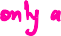 only a